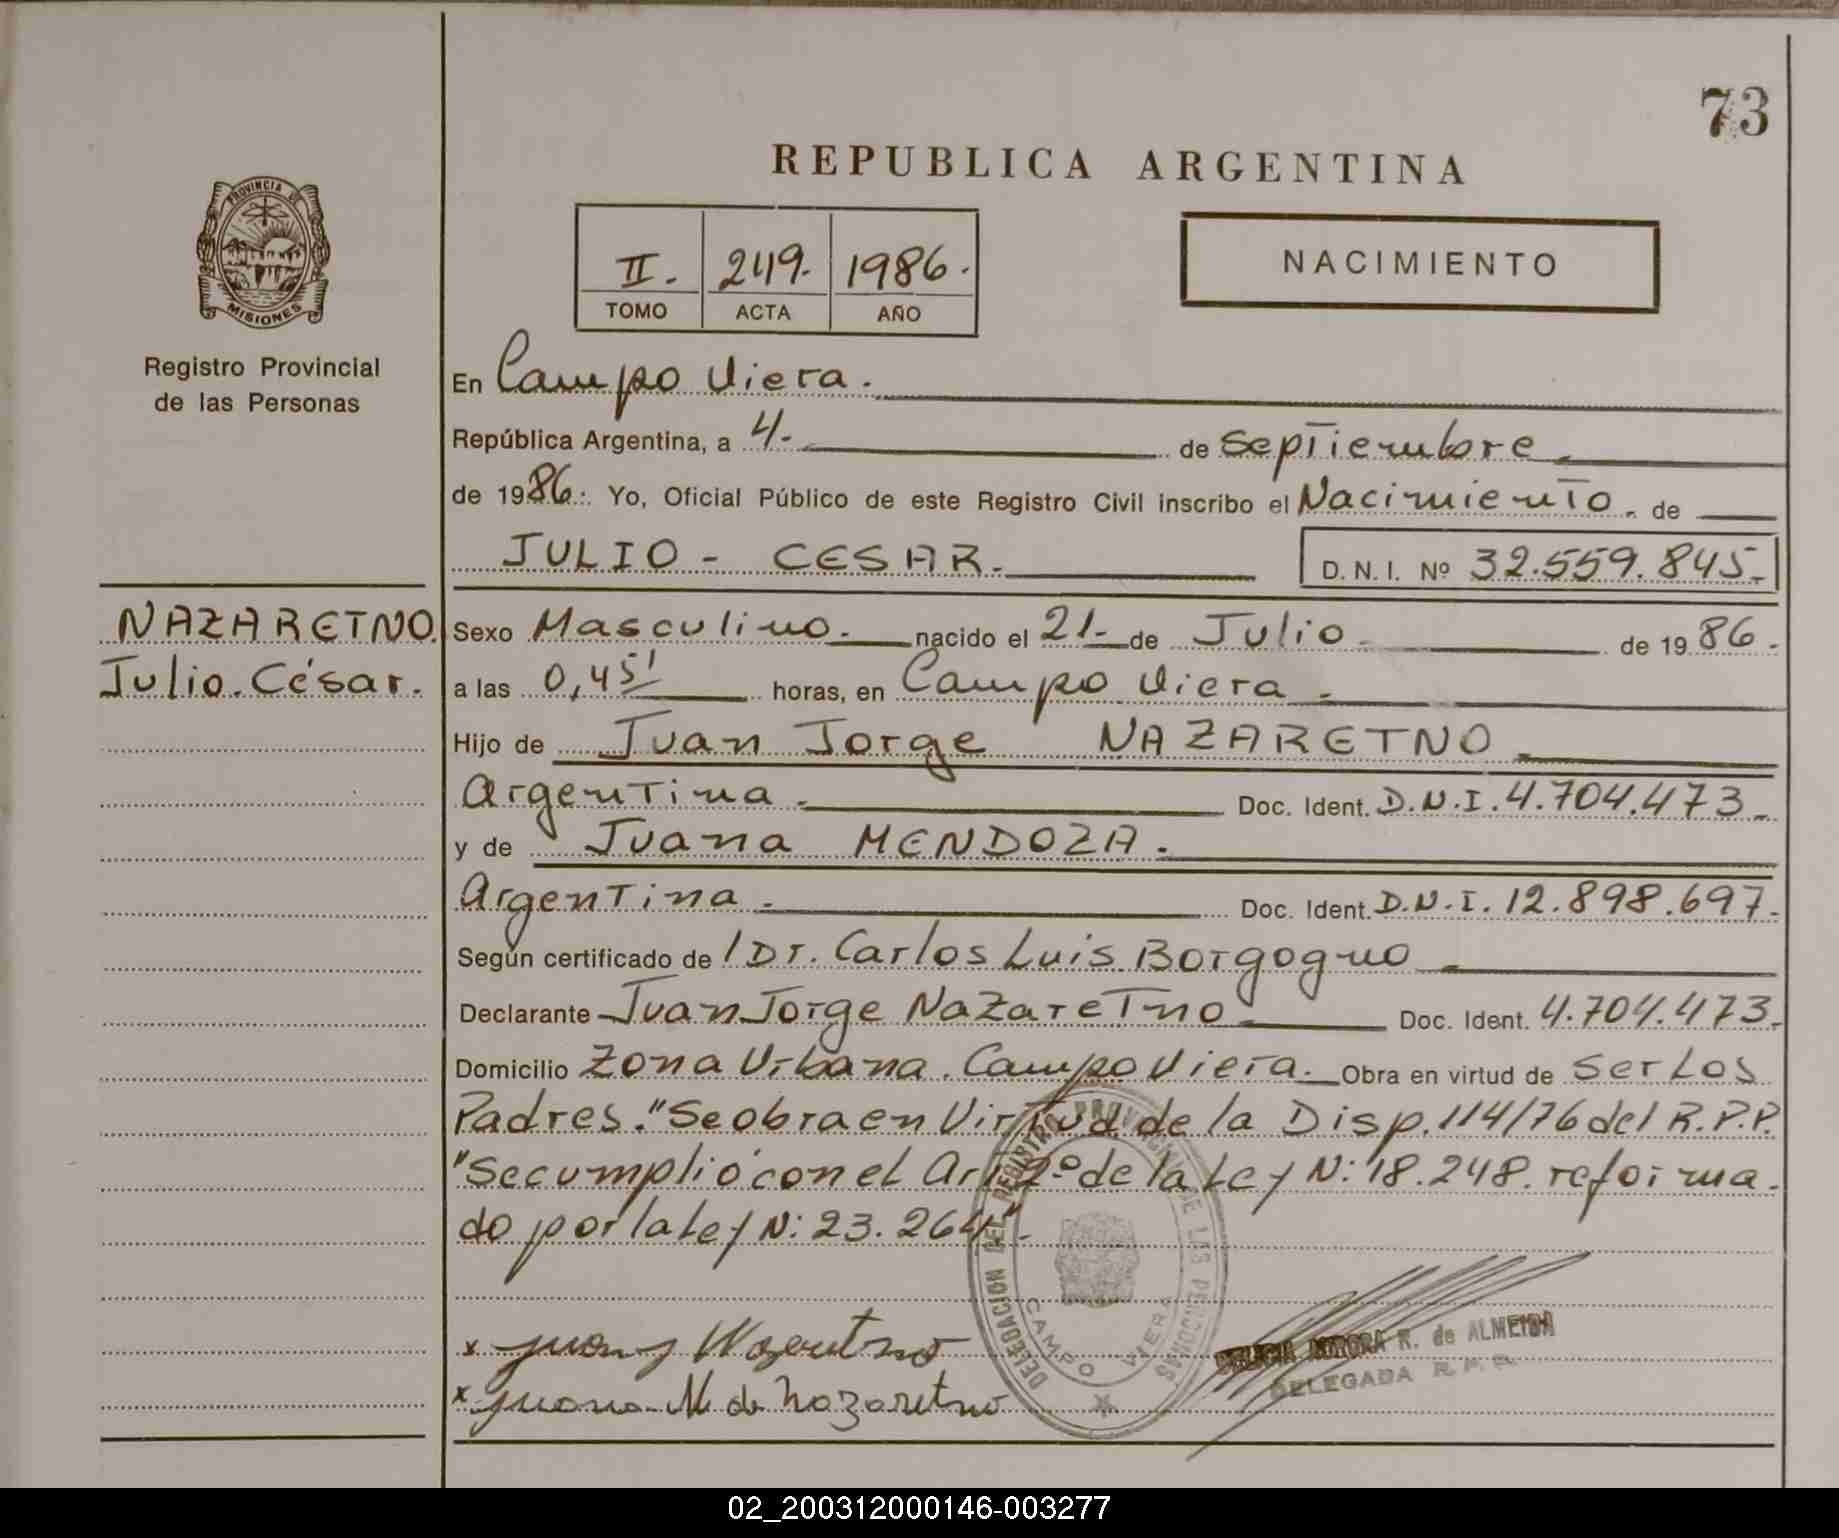 73
REPUBLICA ARGENTINA
II. 249. 1986.
TOMO ACTA AÑO
NACIMIENTO
PROVINCIA DE
MISIONES
Registro Provincial
de las Personas
En Campo Viera.
República Argentina, a 4.- de Septiembre.
de 1986.: Yo, Oficial Público de este Registro Civil inscribo el Nacimiento. de
JULIO - CESAR. D. N. I. Nº 32.559.845.-
NAZARETNO.
Julio. César.
Sexo Masculino. nacido el 21.- de Julio de 1986.
a las 0,45' horas, en Campo Viera.
Hijo de Juan Jorge NAZARETNO
Argentina. Doc. Ident. D.N.I. 4.704.473.
y de Juana MENDOZA.
Argentina. Doc. Ident. D.N.I. 12.898.697.
Según certificado de / Dr. Carlos Luis Borgogno
Declarante Juan Jorge Nazaretno Doc. Ident. 4.704.473.
Domicilio Zona Urbana. Campo Viera. Obra en virtud de ser Los
Padres. "Se obra en Virtud de la Disp. 114/76 del R.P.P.
"Se cumplió con el Art 2º de la Ley N: 18.248. reforma-
do por la Ley N: 23.264".
x Juan J Nazaretno
x Juana M de Nazaretno
DELEGACION DEL REGISTRO PROVINCIAL DE LAS PERSONAS
CAMPO VIERA
AURORA R. de ALMEIDA
DELEGADA R. P. P.
02_200312000146-003277